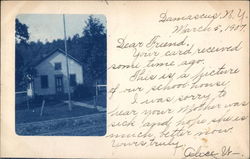 Damascus, N.Y.
March 5, 1907
Dear Friend,
Your card received
some time ago.
This is a picture
of our school house.
I was sorry to
hear your Mother was
sick and hope she is
much better now.
Yours truly,